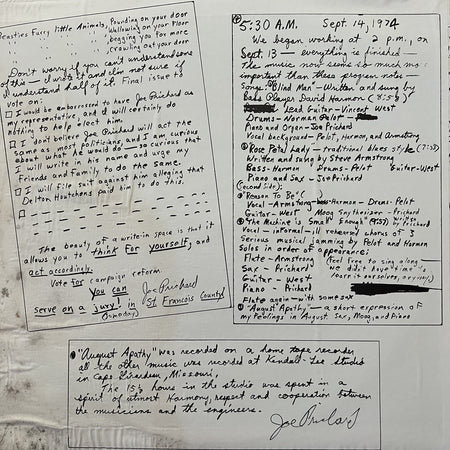 Beasties Furry little Animals, Pounding on your door
Wallowing on your Floor
begging you for more
crawling out your door
Don't worry if you can't understand some
of this — I wrote it and I'm not sure if
I understand half of it. Final issue to
vote on:
□ I would be embarrassed to have Joe Prichard as
my representative and I will certainly do
nothing to help elect him.
□ I don't believe Joe Prichard will act the
same as most politicians, and I am curious
about what he would do — so curious that
I will write in his name and urge my
Friends and Family to do the same.
□ I will file suit against him alleging that
Delton Houtchens paid him to do this.
□
The beauty of a write-in space is that it
allows you to think for yourself, and
act accordingly.
Vote for campaign reform.
you can
serve on a jury! in
(someday)
Joe Prichard
St Francois County
5:30 A.M. Sept. 14, 1974
We began working at 2 p.m., on
Sept. 13 — everything is finished —
The music now seems so much more
important than these program notes —
Song: "Blind Man" - Written and sung by
Bass Player David Harmon (8:58)
Lead Guitar - Vincent West
Drums - Norman Pelot -
Piano and Organ - Joe Prichard
Vocal Background - Pelot, Harmon, and Armstrong
Rose Petal Lady - traditional blues style (7:58)
Written and sung by Steve Armstrong
Bass - Harmon Drums - Pelot Guitar - West
Piano and Sax - Joe Prichard
(Second Side):
"Reason To Be"
Vocal - Armstrong - Harmon - Drums - Pelot
Guitar - West Moog Synthesizer - Prichard
"The Machine is Small Enough"
Vocal - informal, ill rehearsed chorus of 3
Serious musical jamming by Pelot and Harmon
Solos in order of appearance:
Flute - Armstrong
Sax - Prichard
Guitar - West
Piano - Prichard
Flute again - with some sax
(Feel free to sing along
we didn't have time to
rehearse ourselves, anyway)
"August Apathy" - a short expression of
my feelings in August. Sax, Moog, and Piano
"August Apathy" was recorded on a home tape recorder
all the other music was recorded at Kendall-Lee Studio
in Cape Girardeau, Missouri.
The 15½ hours in the studio was spent in a
spirit of utmost Harmony, respect and cooperation between
the musicians and the engineers.
Joe Prichard